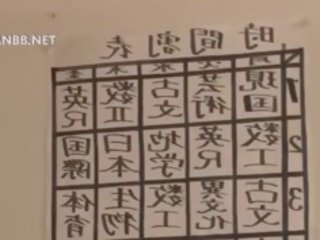 ANBB.NET
時間割表
月 水 木 金
1 現国 芸術 古文 数II 英R
2 数I 英R 地学 日本 国際
3 古文 異文化 数I 生物 体育